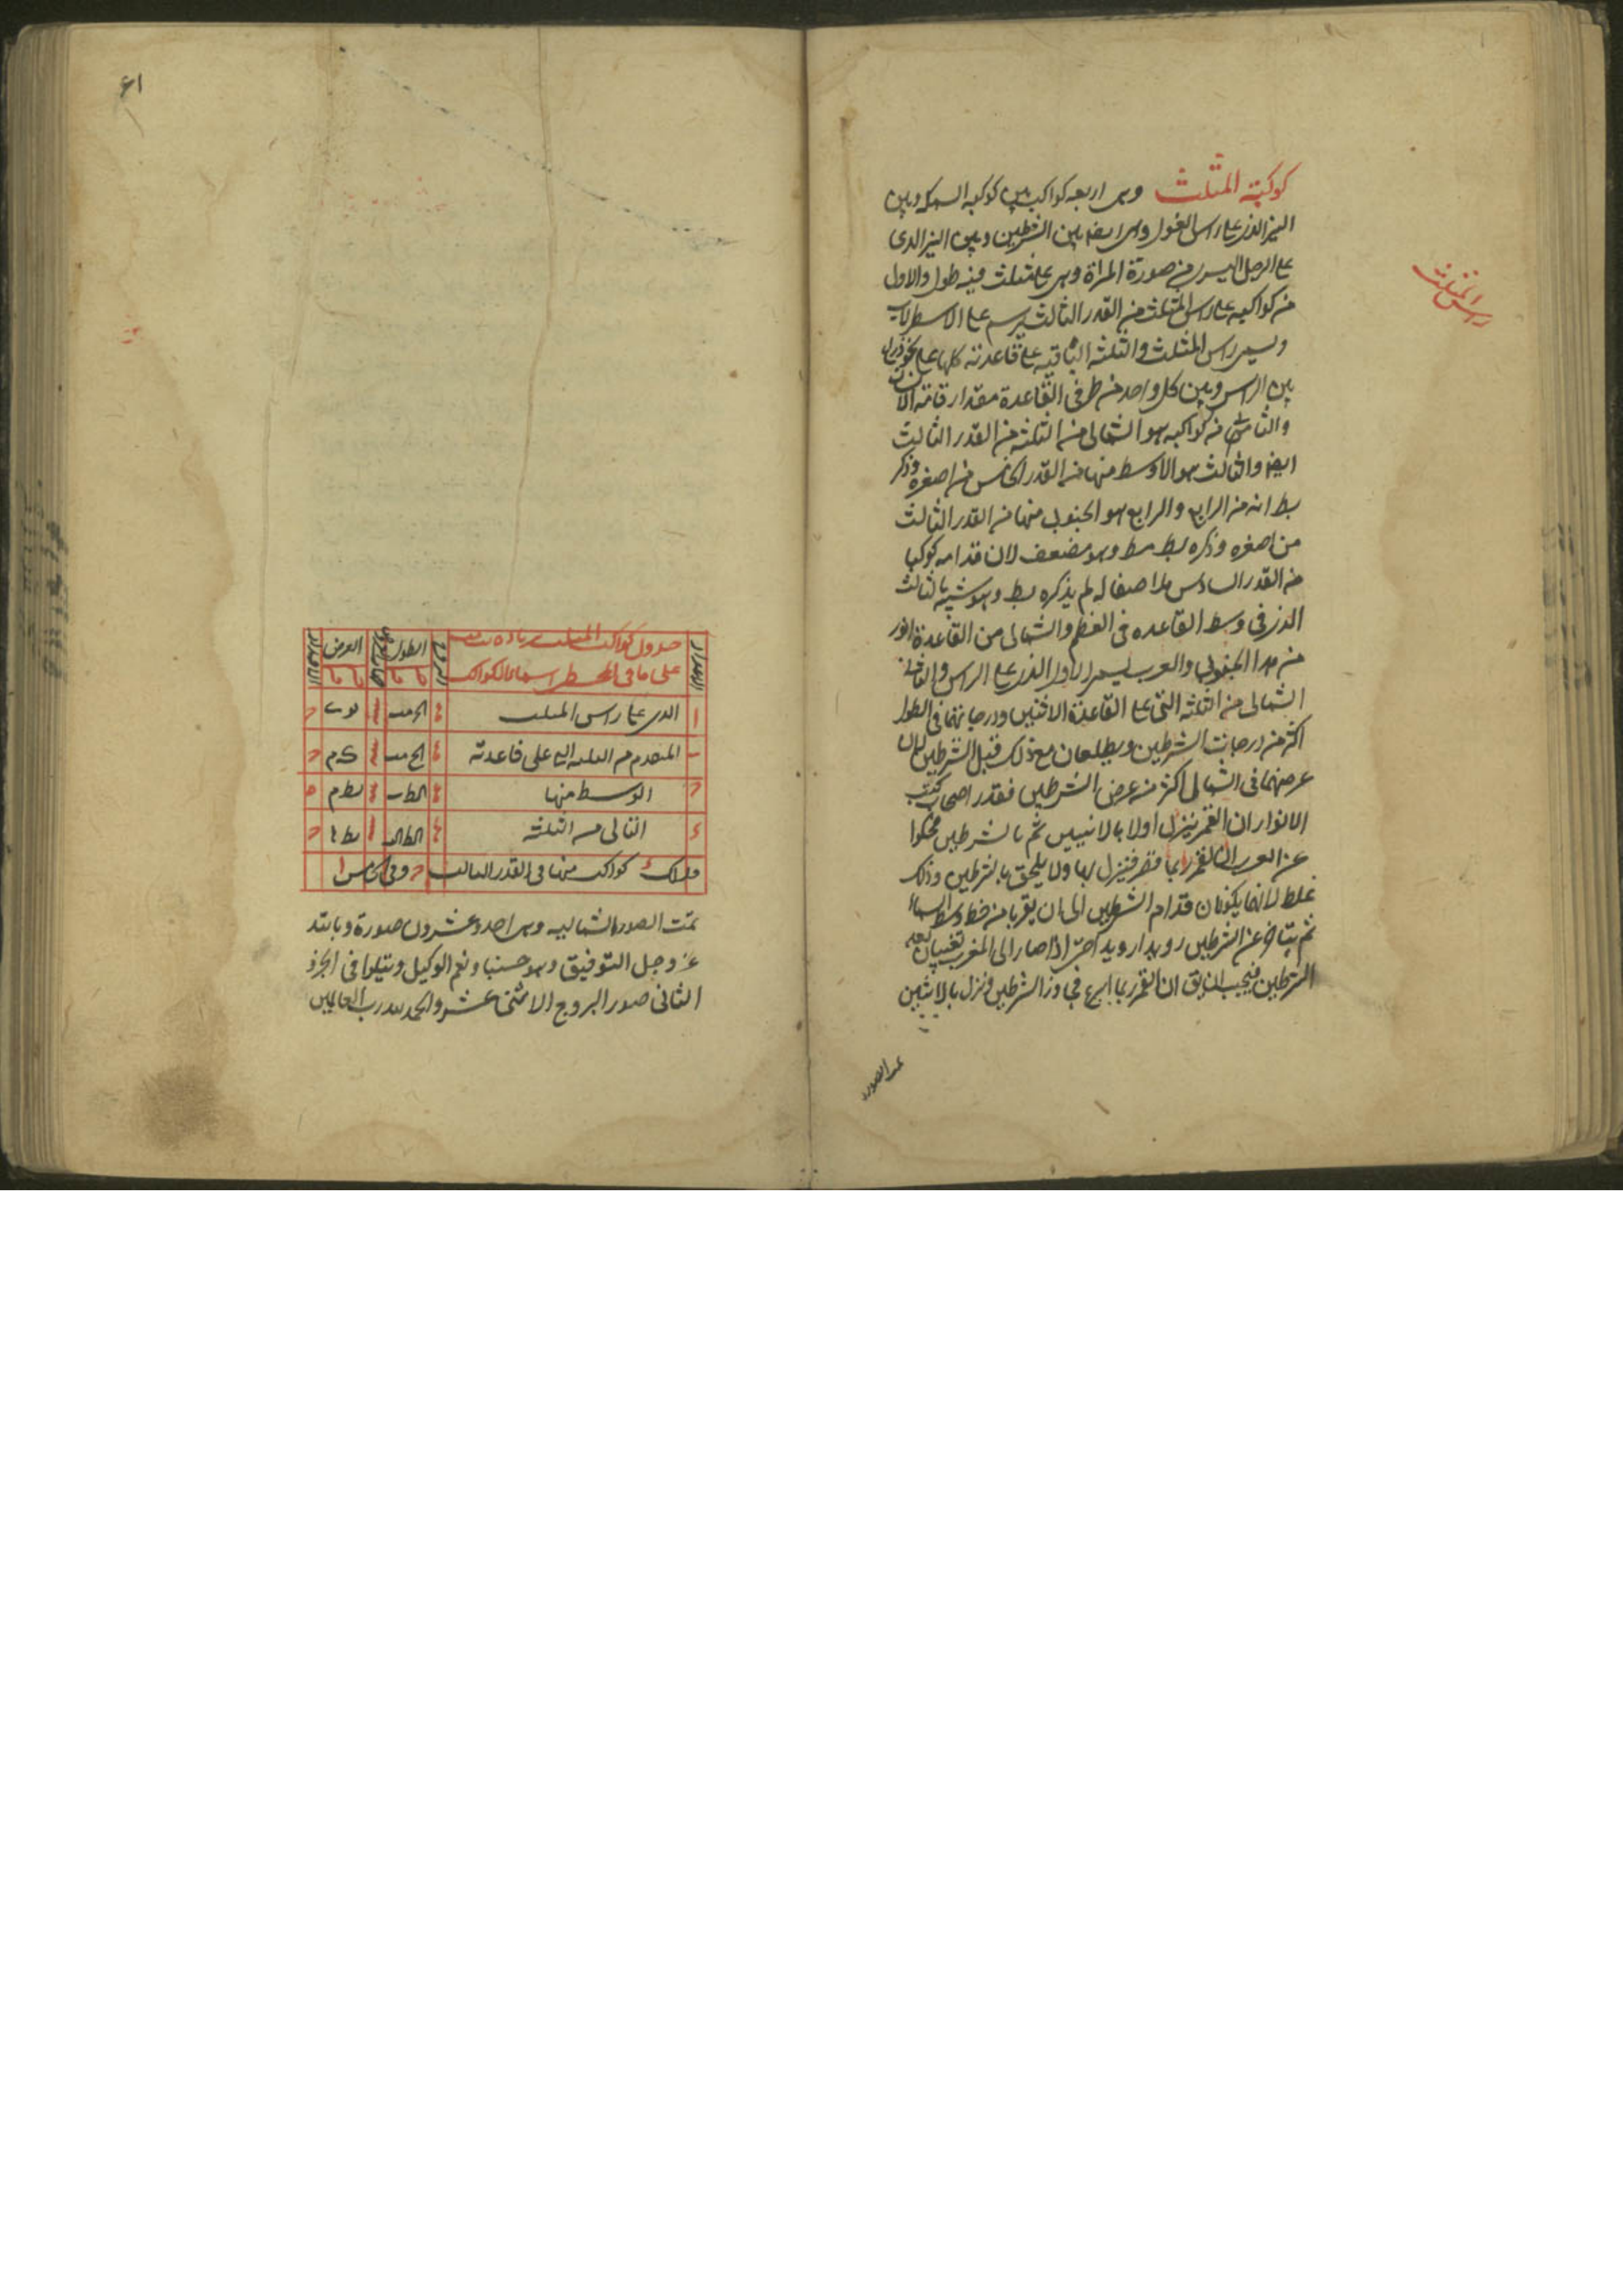 كوكبة المثلث وهى اربعه كواكب بين كوكبه السمكه وبين
النير الذى على راس الغول وهى ايضا بين الشرطين وبين النير الذى
على الرجل اليسرى من صورة المراة وهى على مثلث فيه طول والاول
من كواكبه على راس المثلث من القدر الثالث يرسم على الاسطرلاب
ويسمى راس المثلث والثلثه الباقيه على قاعدته كلها على نحو ذراع
بين الراس وبين كل واحد من طرفى القاعدة مقدار قامة الانسان
والثانى من كواكبه هو الشمالى من الثلثه من القدر الثالث
ايضا والثالث هو الاوسط منها من القدر الخامس من اصغره وذكر
بط انه من الرابع والرابع هو الجنوبى منها من القدر الثالث
من اصغره وذكره بط مط وهو مضعف لان قدامه كوكبا
من القدر السادس ملاصقا له لم يذكره بط وهو شبيه بالثالث
الذى فى وسط القاعده فى العظم والشمالى من القاعدة انور
من هذا الجنوبى والعرب يسمى الاول الذى على الراس والثانى
الشمالى من الثلثه التى على القاعدة الانيسين ودرجاتهما فى الطول
اكثر من درجات الشرطين ويطلعان مع ذلك قبل الشرطين لان
عرضهما فى الشمال اكثر من عرض الشرطين فقدر اصحاب كتب
الانواء ان القمر ينزل اولا بالانيسين ثم بالشرطين فحكوا
عن العرب ان القمر ربما قصر فينزل بها ولا يلحق بالشرطين وذلك
غلط لانهما يكونان قدام الشرطين الى ان يقربا من خط وسط السماء
ثم يتاخر عن الشرطين رويدا رويدا حتى اذا صارا الى المغرب تغيبان بعد
الشرطين فيجب ان يق ان القمر ربما اسرع فجاوز الشرطين ونزل بالانيسين
تمت الصور
راس المثلث
٤١
جدول كواكب المثلث بزيادة
على ما فى المجسطى اسماء الكواكب
الاعداد
البروج
الطول
العرض
الاقدار
ا الذى على راس المثلث
ب المتقدم من الثلثه التى على قاعدته
ج الوسط منها
د التالى من الثلثه
فذلك د كواكب منها فى القدر الثالث ج وفى الخامس ا
تمت الصور الشماليه وهى احد وعشرون صورة وبالله
عز وجل التوفيق وهو حسبنا ونعم الوكيل ويتلوا فى الجزء
الثانى صور البروج الاثنى عشر والحمد لله رب العالمين